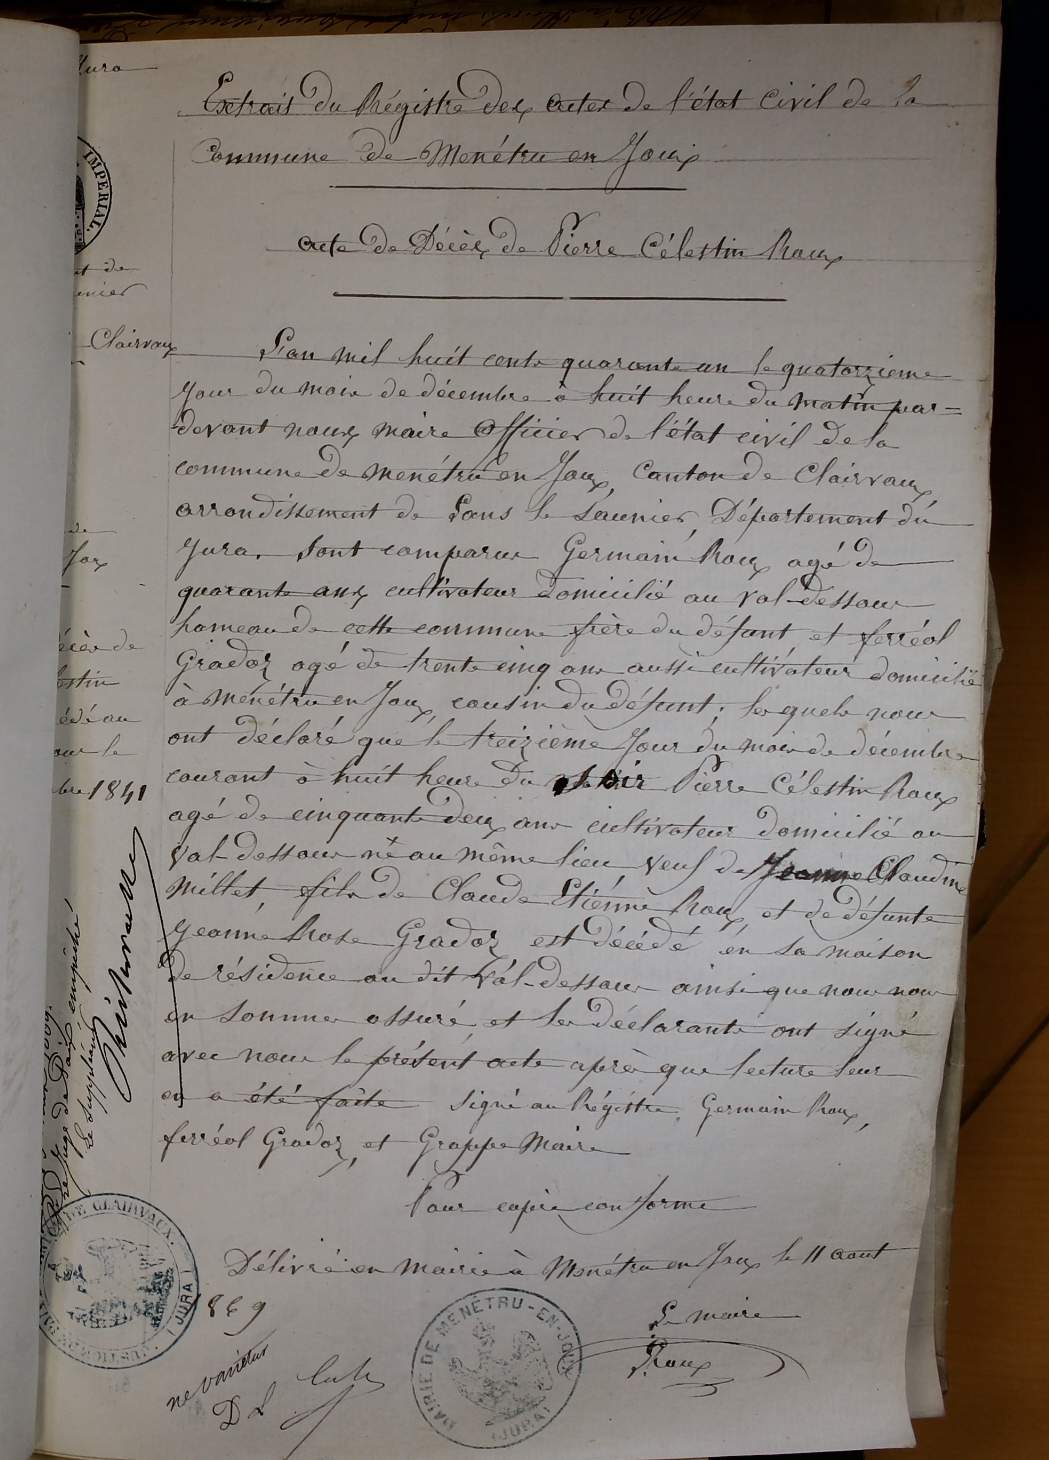 Jura
Extrait du Régistre des actes de l'état civil de la
Commune de Menétru en Joux
IMPERIAL.
acte de Décès de Pierre Célestin Roux
Clairvaux
L'an mil huit cents quarante un le quatorzieme
Jour du mois de décembre à huit heure du matin par=
devant nous maire officier de l'état civil de la
commune de menétru en Joux, Canton de Clairvaux,
arrondissement de Lons le Saunier, Département du
Jura. Sont comparus Germain Roux agé de
quarante ans cultivateur domicilié au Val-dessous
hameau de cette commune frère du défunt et ferréol
Gradoz agé de trente cinq ans aussi cultivateur domicilié
à menétru en Joux, cousin du défunt; les quels nous
ont déclaré que le treizième Jour du mois de décembre
courant à huit heure du soir Pierre Célestin Roux
agé de cinquante deux ans cultivateur domicilié au
Val-dessous né au même lieu veuf de Jeanne Claudine
Millet, fils de Claude Etienne Roux, et de défunte
Jeanne Rose Gradoz est décédé en sa maison
de résidence au dit Val-dessous ainsi que nous nous
en sommes assuré et les déclarants ont signé
avec nous le présent acte après que lecture leur
en a été faite signé au Régistre. Germain Roux,
ferréol Gradoz, et Grappe Maire
Pour copie conforme
Délivré en mairie à Menétru en Joux le 11 aout
1869
Le maire
Roux
ne varietur
D L
MAIRIE DE MENETRU-EN-JOUX
(JURA)
DE CLAIRVAUX.
(JURA)
de
Joux
décès de
lestin
cédé au
sous le
bre 1841
Juge de Paix empêché
Le Suppléant